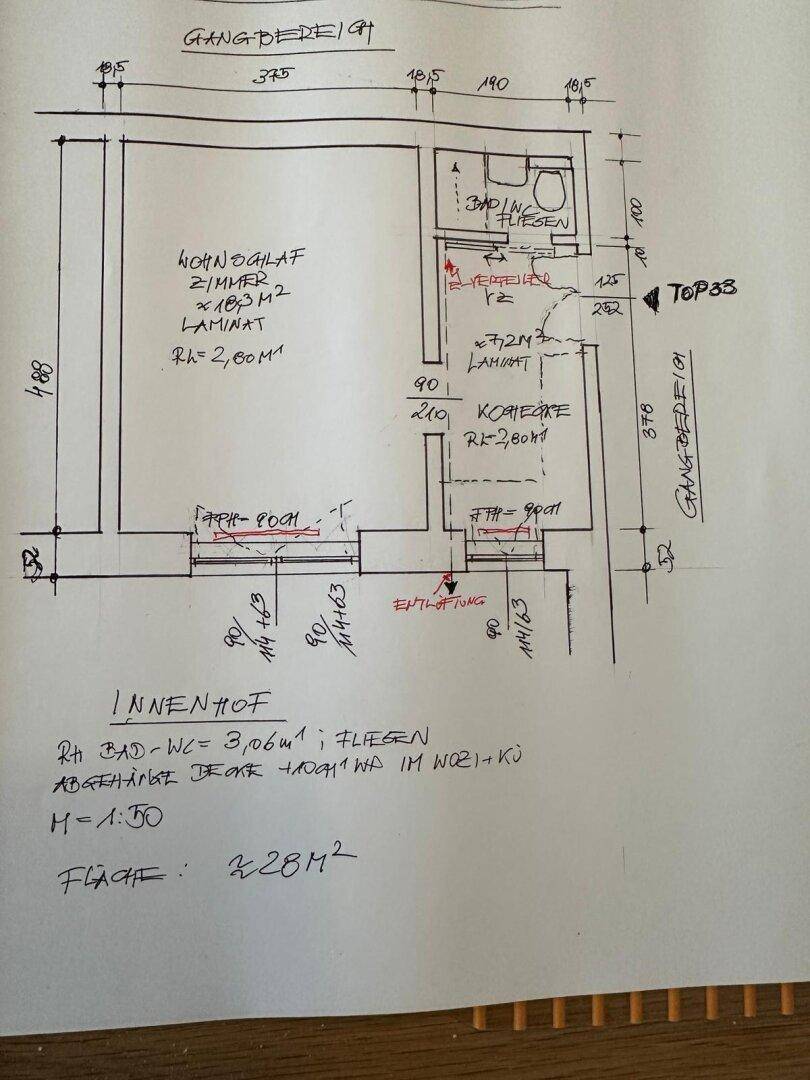 GANGBEREICH
18,5
375
18,5
190
18,5
BAD/WC
FLIESEN
100
10
WOHNSCHLAF
ZIMMER
≈18,3 M²
LAMINAT
RH=2,80M¹
E-VERTEILER
VZ
125
252
TOP33
≈7,2M²
LAMINAT
90
210
KOCHECKE
RH=2,80M¹
488
378
GANGBEREICH
FPH=90CM
FPH=90CM
52
52
ENTLÜFTUNG
90
114+63
90
114+63
90
114/63
INNENHOF
RH BAD-WC= 3,06m¹ ; FLIESEN
ABGEHÄNGE DECKE +10CM WD IM WOZI+KÜ
M=1:50
FLÄCHE: ≈28M²